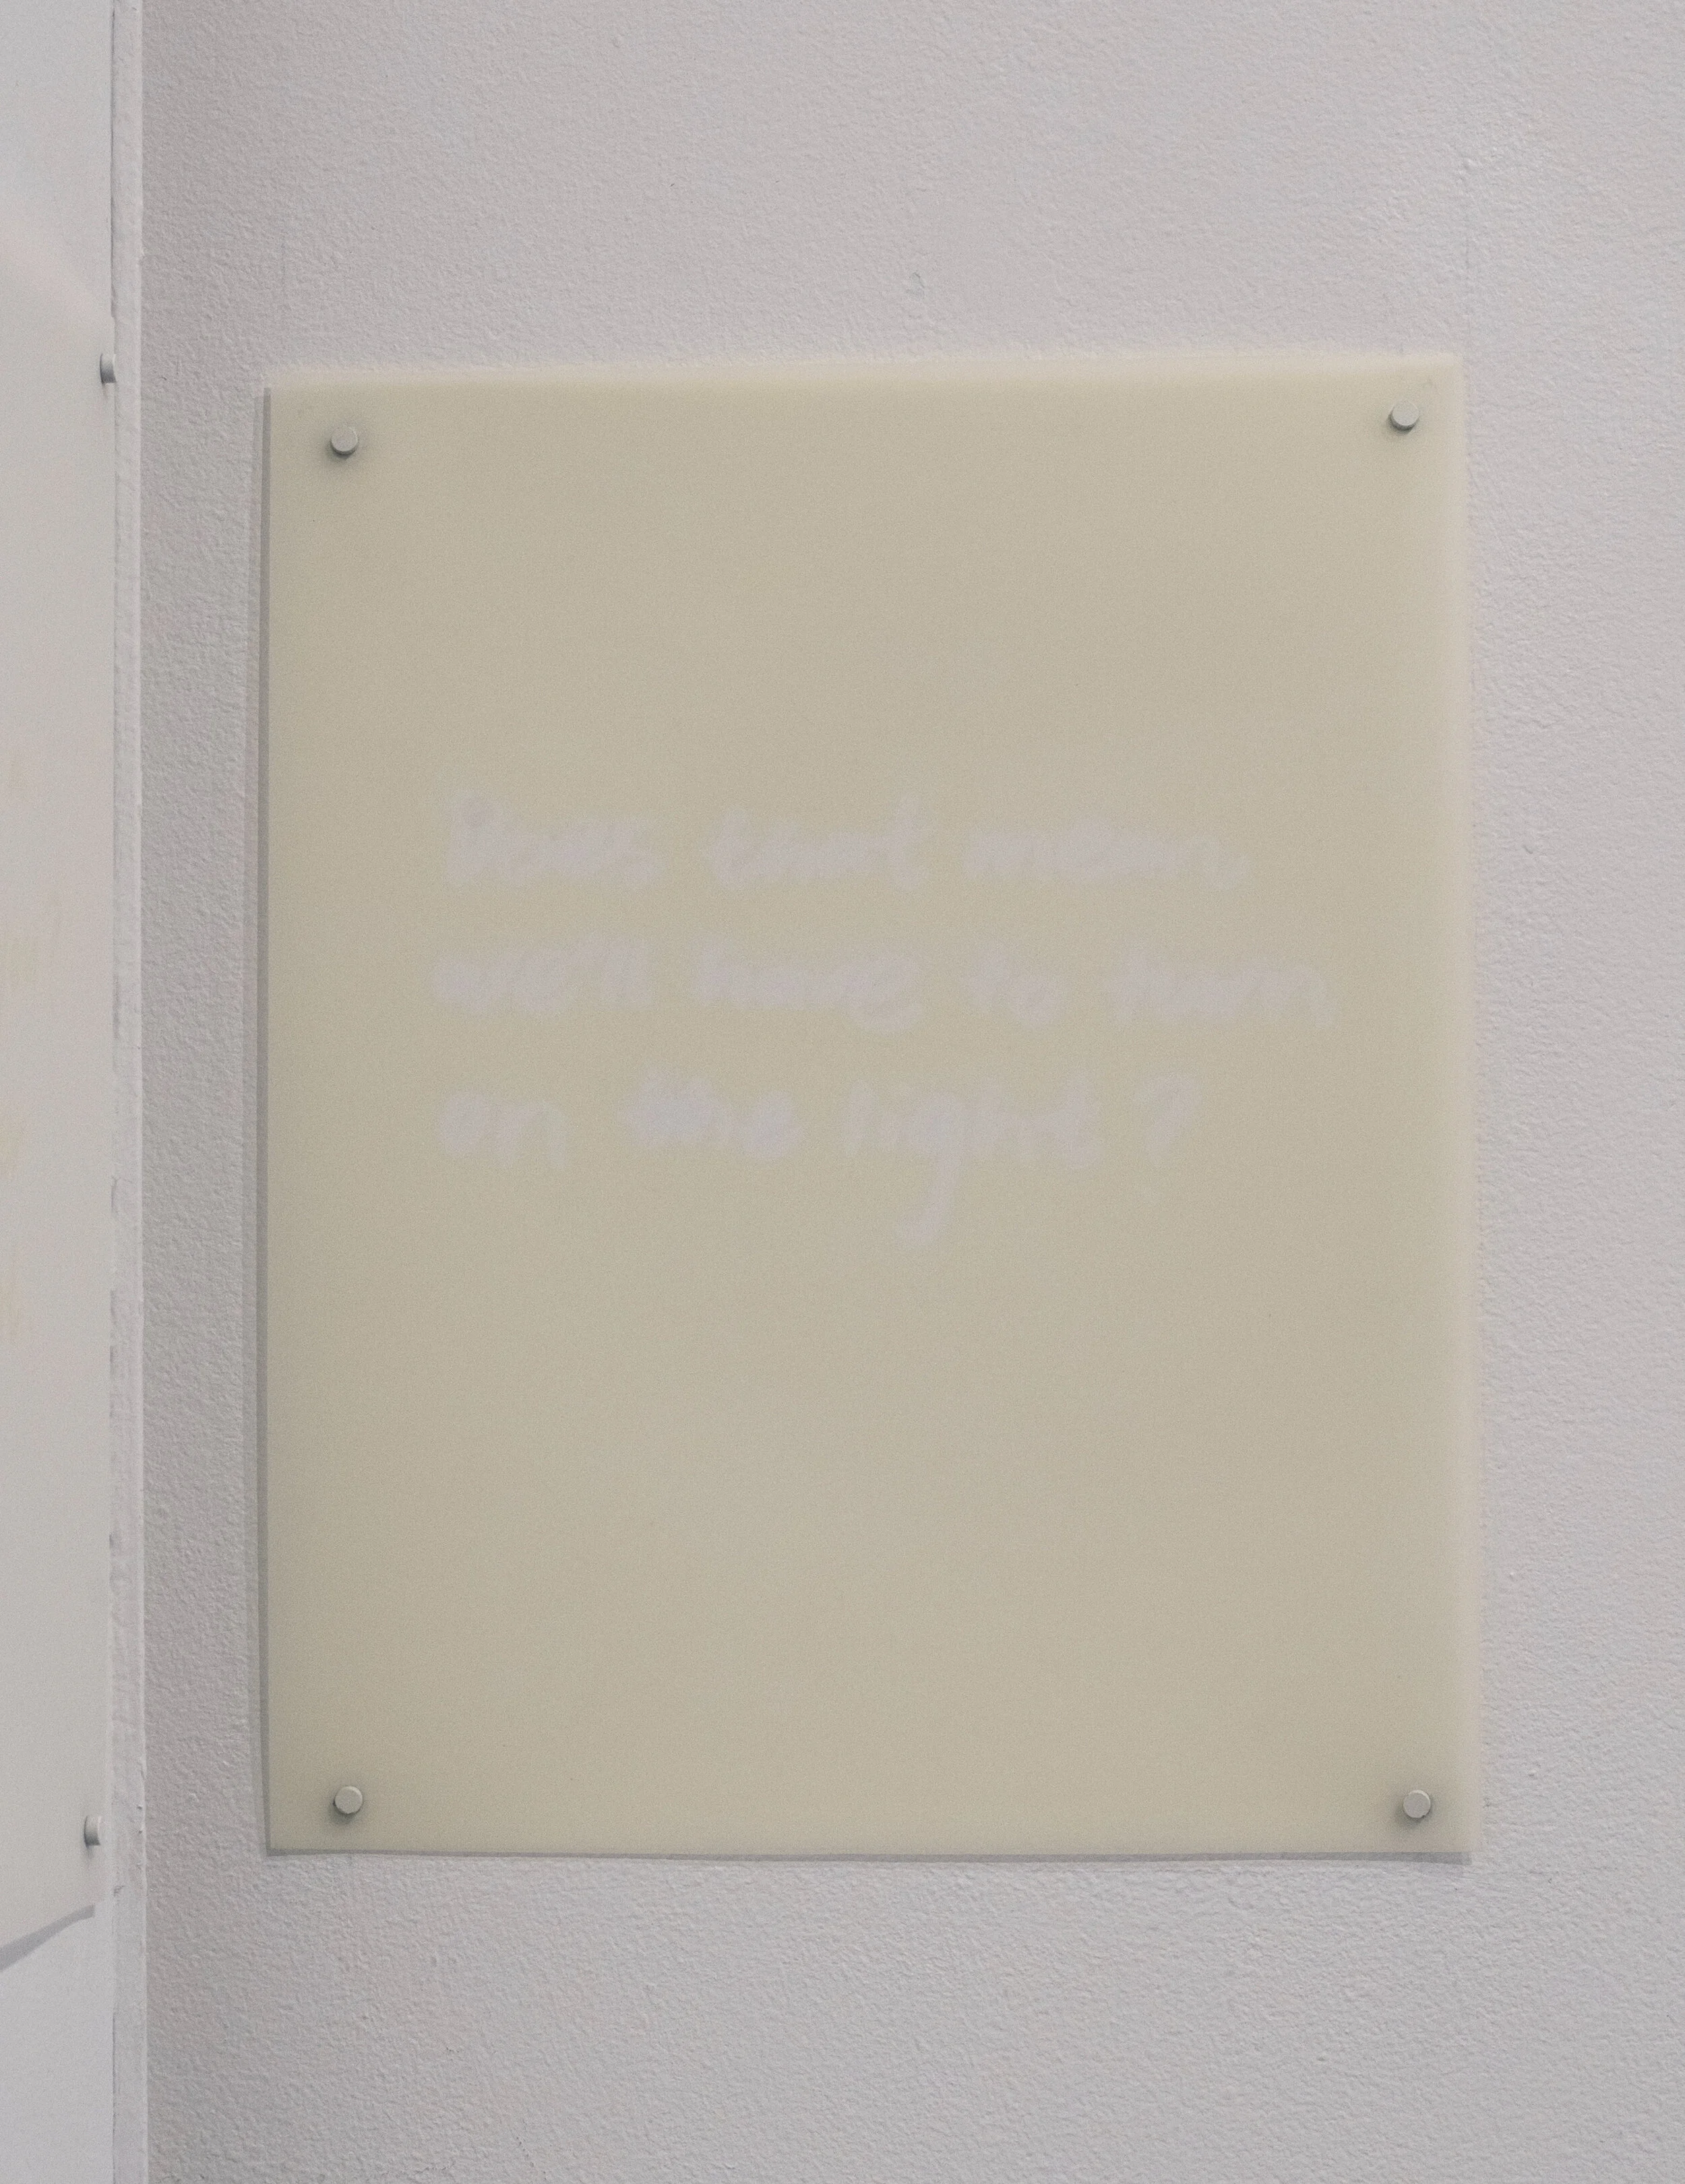 that mean
we'll have to turn
on the light?